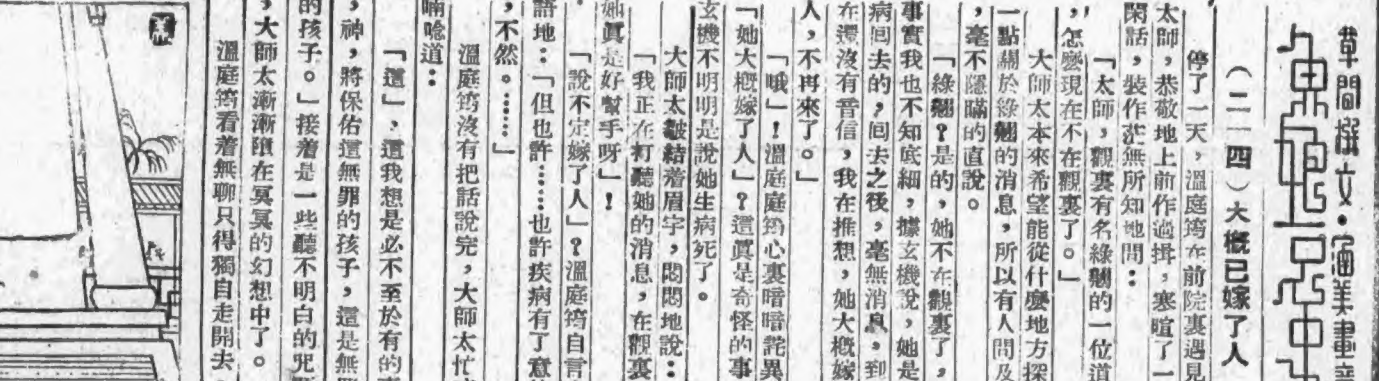 草間撰文・美畫
（二一四）大概已嫁了人
停了一天，溫庭筠在前院裏遇見
太師，恭敬地上前作過揖，寒暄了一
閑話，裝作茫無所知地問：
「太師，觀裏有名綠翹的一位道
，怎麽現在不在觀裏了。」
大師太本來希望能從什麽地方探
一點關於綠翹的消息，所以有人問及
，毫不隱瞞的直說。
「綠翹？是的，她不在觀裏了，
事實我也不知底細，據玄機說，她是
病囘去的，囘去之後，毫無消息，到
在還沒有音信，我在推想，她大概嫁
人，不再來了。」
「哦」！溫庭庭筠心裏暗暗詫異
「她大概嫁了人」？這眞是奇怪的事
玄機不明明是說她生病死了。
大師太皺結着眉宇，悶悶地說：
「我正在打聽她的消息，在觀裏
她眞是好幫手呀」！
「說不定嫁了人」？溫庭筠自言
語地：「但也許……也許疾病有了意
，不然。……」
溫庭筠沒有把話說完，大師太忙
喃唸道：
「這」，這我想是必不至於有的
，神，將保佑這無罪的孩子，這是無
的孩子。」接着是一些聽不明白的咒
，大師太漸漸隕在冥冥的幻想中了。
溫庭筠看着無聊只得獨自走開去。